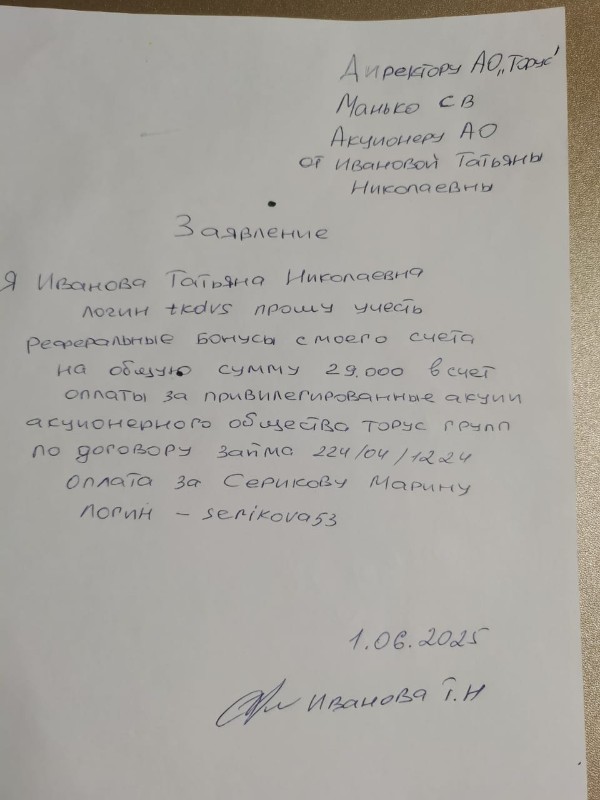 Директору АО „Торус"
Манько СВ
Акционеру АО
от Ивановой Татьяны
Николаевны
Заявление
Я Иванова Татьяна Николаевна
логин tkdvs прошу учесть
реферальные бонусы с моего счета
на общую сумму 29.000 в счет
оплаты за привилегированные акции
акционерного общества торус групп
по договору займа 224/04/1224
оплата за Серикову Марину
логин – serikova53
1.06.2025
Иванова Т.Н